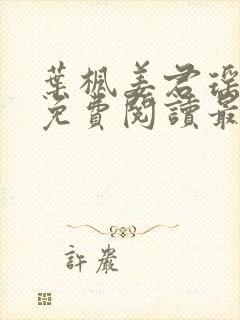 葉楓姜君瑤
免費閱讀最
許嚴